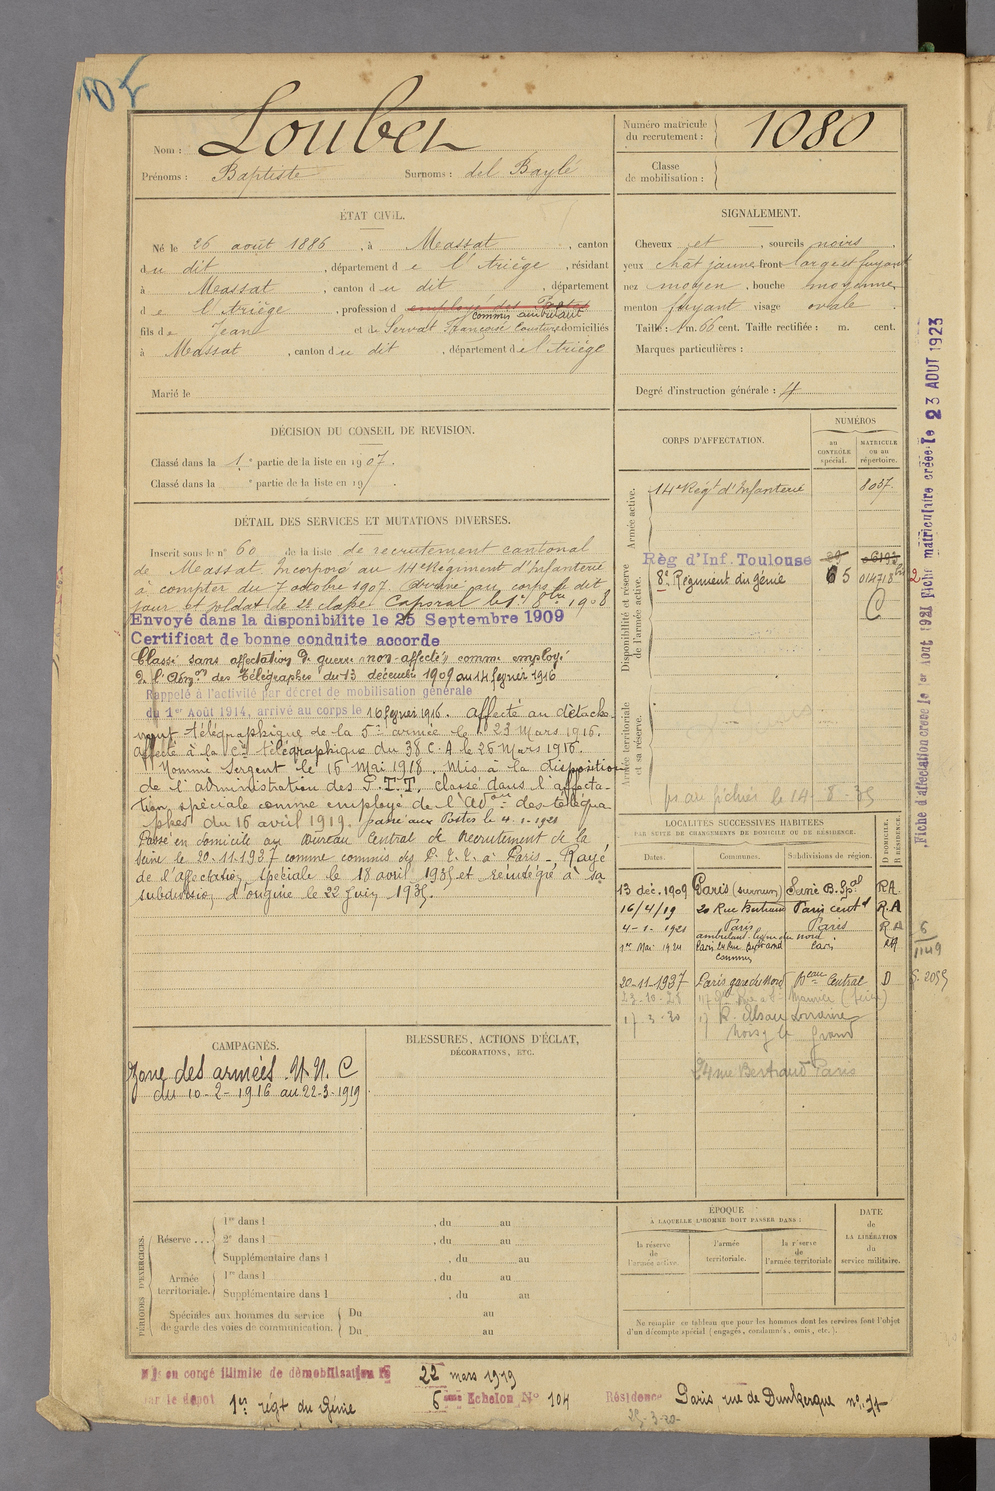 Nom : Louber
Prénoms : Baptiste Surnoms : del Baylé
Numéro matricule du recrutement : 1080
Classe de mobilisation :
ÉTAT CIVIL.
Né le 26 août 1886, à Massat, canton
du dit, département de l'Ariège, résidant
à Massat, canton du dit, département
de l'Ariège, profession d employé des Postes
commis ambulant
fils de Jean et de Servat Françoise domiciliés
à Massat, canton du dit, département de l'Ariège
Marié le
SIGNALEMENT.
Cheveux et, sourcils noirs,
yeux chât jaune front large et fuyant
nez moyen, bouche moyenne,
menton fuyant visage ovale
Taille : 1m. 66 cent. Taille rectifiée : m. cent.
Marques particulières :
Degré d'instruction générale : 4
DÉCISION DU CONSEIL DE REVISION.
Classé dans la 1e partie de la liste en 1907.
Classé dans la e partie de la liste en 19
CORPS D'AFFECTATION.
NUMÉROS
au CONTRÔLE spécial.
MATRICULE ou au répertoire.
Armée active.
14e Régt d'Infanterie 8037.
Disponibilité et réserve de l'armée active.
Règ d'Inf. Toulouse
8e Régiment du génie 65 014718 bis
C
Armée territoriale et sa réserve.
DÉTAIL DES SERVICES ET MUTATIONS DIVERSES.
Inscrit sous le n° 60 de la liste de recrutement cantonal
de Massat. Incorporé au 14e Régiment d'Infanterie
à compter du 7 octobre 1907. Arrivé au corps le dit
jour et soldat de 2e classe. Caporal le 1er 8bre 1908
Envoyé dans la disponibilite le 25 Septembre 1909
Certificat de bonne conduite accorde
Classé sans affectation de guerre non-affecté comme employé
de l'Admon des Télégraphes du 13 décembre 1909 au 14 février 1916
Rappelé à l'activité par décret de mobilisation générale
du 1er Août 1914, arrivé au corps le 16 février 1916. Affecté au détache-
ment télégraphique de la 5e armée le 23 Mars 1916.
Affecté à la Cie télégraphique du 38 C.A. le 25 Mars 1916.
Nommé Sergent le 16 Mai 1918. Mis à la disposition
de l'administration des P.T.T. classé dans l'affecta-
tion spéciale comme employé de l'Adon des télégra-
phes du 16 avril 1919. passé aux Postes le 4-1-1921
Passé en domicile au Bureau Central de Recrutement de la
Seine le 20.11.1937 comme commis des P.T.T. à Paris - Rayé
de l'Affectation spéciale le 18 avril 1935 et réintégré à sa
subdivision d'origine le 22 Juin 1935.
LOCALITÉS SUCCESSIVES HABITÉES
PAR SUITE DE CHANGEMENTS DE DOMICILE OU DE RÉSIDENCE.
Dates. Communes. Subdivisions de région. D DOMICILE. R RÉSIDENCE.
13 déc. 1909 Paris Seine B. Spal R.A.
16/4/19 20 Rue Bertrand Paris centl R.A
4-1-1921 Paris Paris R A
ambulant ligne du nord
1er Mai 1924 Paris 24 Rue Bertrand Paris RA
commis
20-11-1937 Paris gare du Nord Beau Central D
23-10-28
17-3-30 17 R. Alsace Lorraine
Noisy le Grand
24 rue Bertrand Paris
CAMPAGNES.
Zone des armées. N.N. C
du 10-2-1916 au 22-3-1919
BLESSURES, ACTIONS D'ÉCLAT,
DÉCORATIONS, ETC.
PÉRIODES D'EXERCICES.
Réserve . . . 1re dans l , du au
2e dans l , du au
Supplémentaire dans l , du au
Armée territoriale. 1re dans l , du au
Supplémentaire dans l , du au
Spéciales aux hommes du service de garde des voies de communication. Du au
Du au
ÉPOQUE
À LAQUELLE L'HOMME DOIT PASSER DANS :
la réserve de l'armée active.
l'armée territoriale.
la réserve de l'armée territoriale
DATE de LA LIBÉRATION du service militaire.
Ne remplir ce tableau que pour les hommes dont les services font l'objet
d'un décompte spécial (engagés, condamnés, omis, etc.).
Mis en congé illimité de démobilisation le 22 mars 1919
par le dépôt 1er régt du Génie 6ème Echelon N° 104 Résidence Paris, rue de Dunkerque n° 71
Fiche d'affectation créée le 1er Aout 1921 Fiche matriculaire créée le 23 AOUT 1923